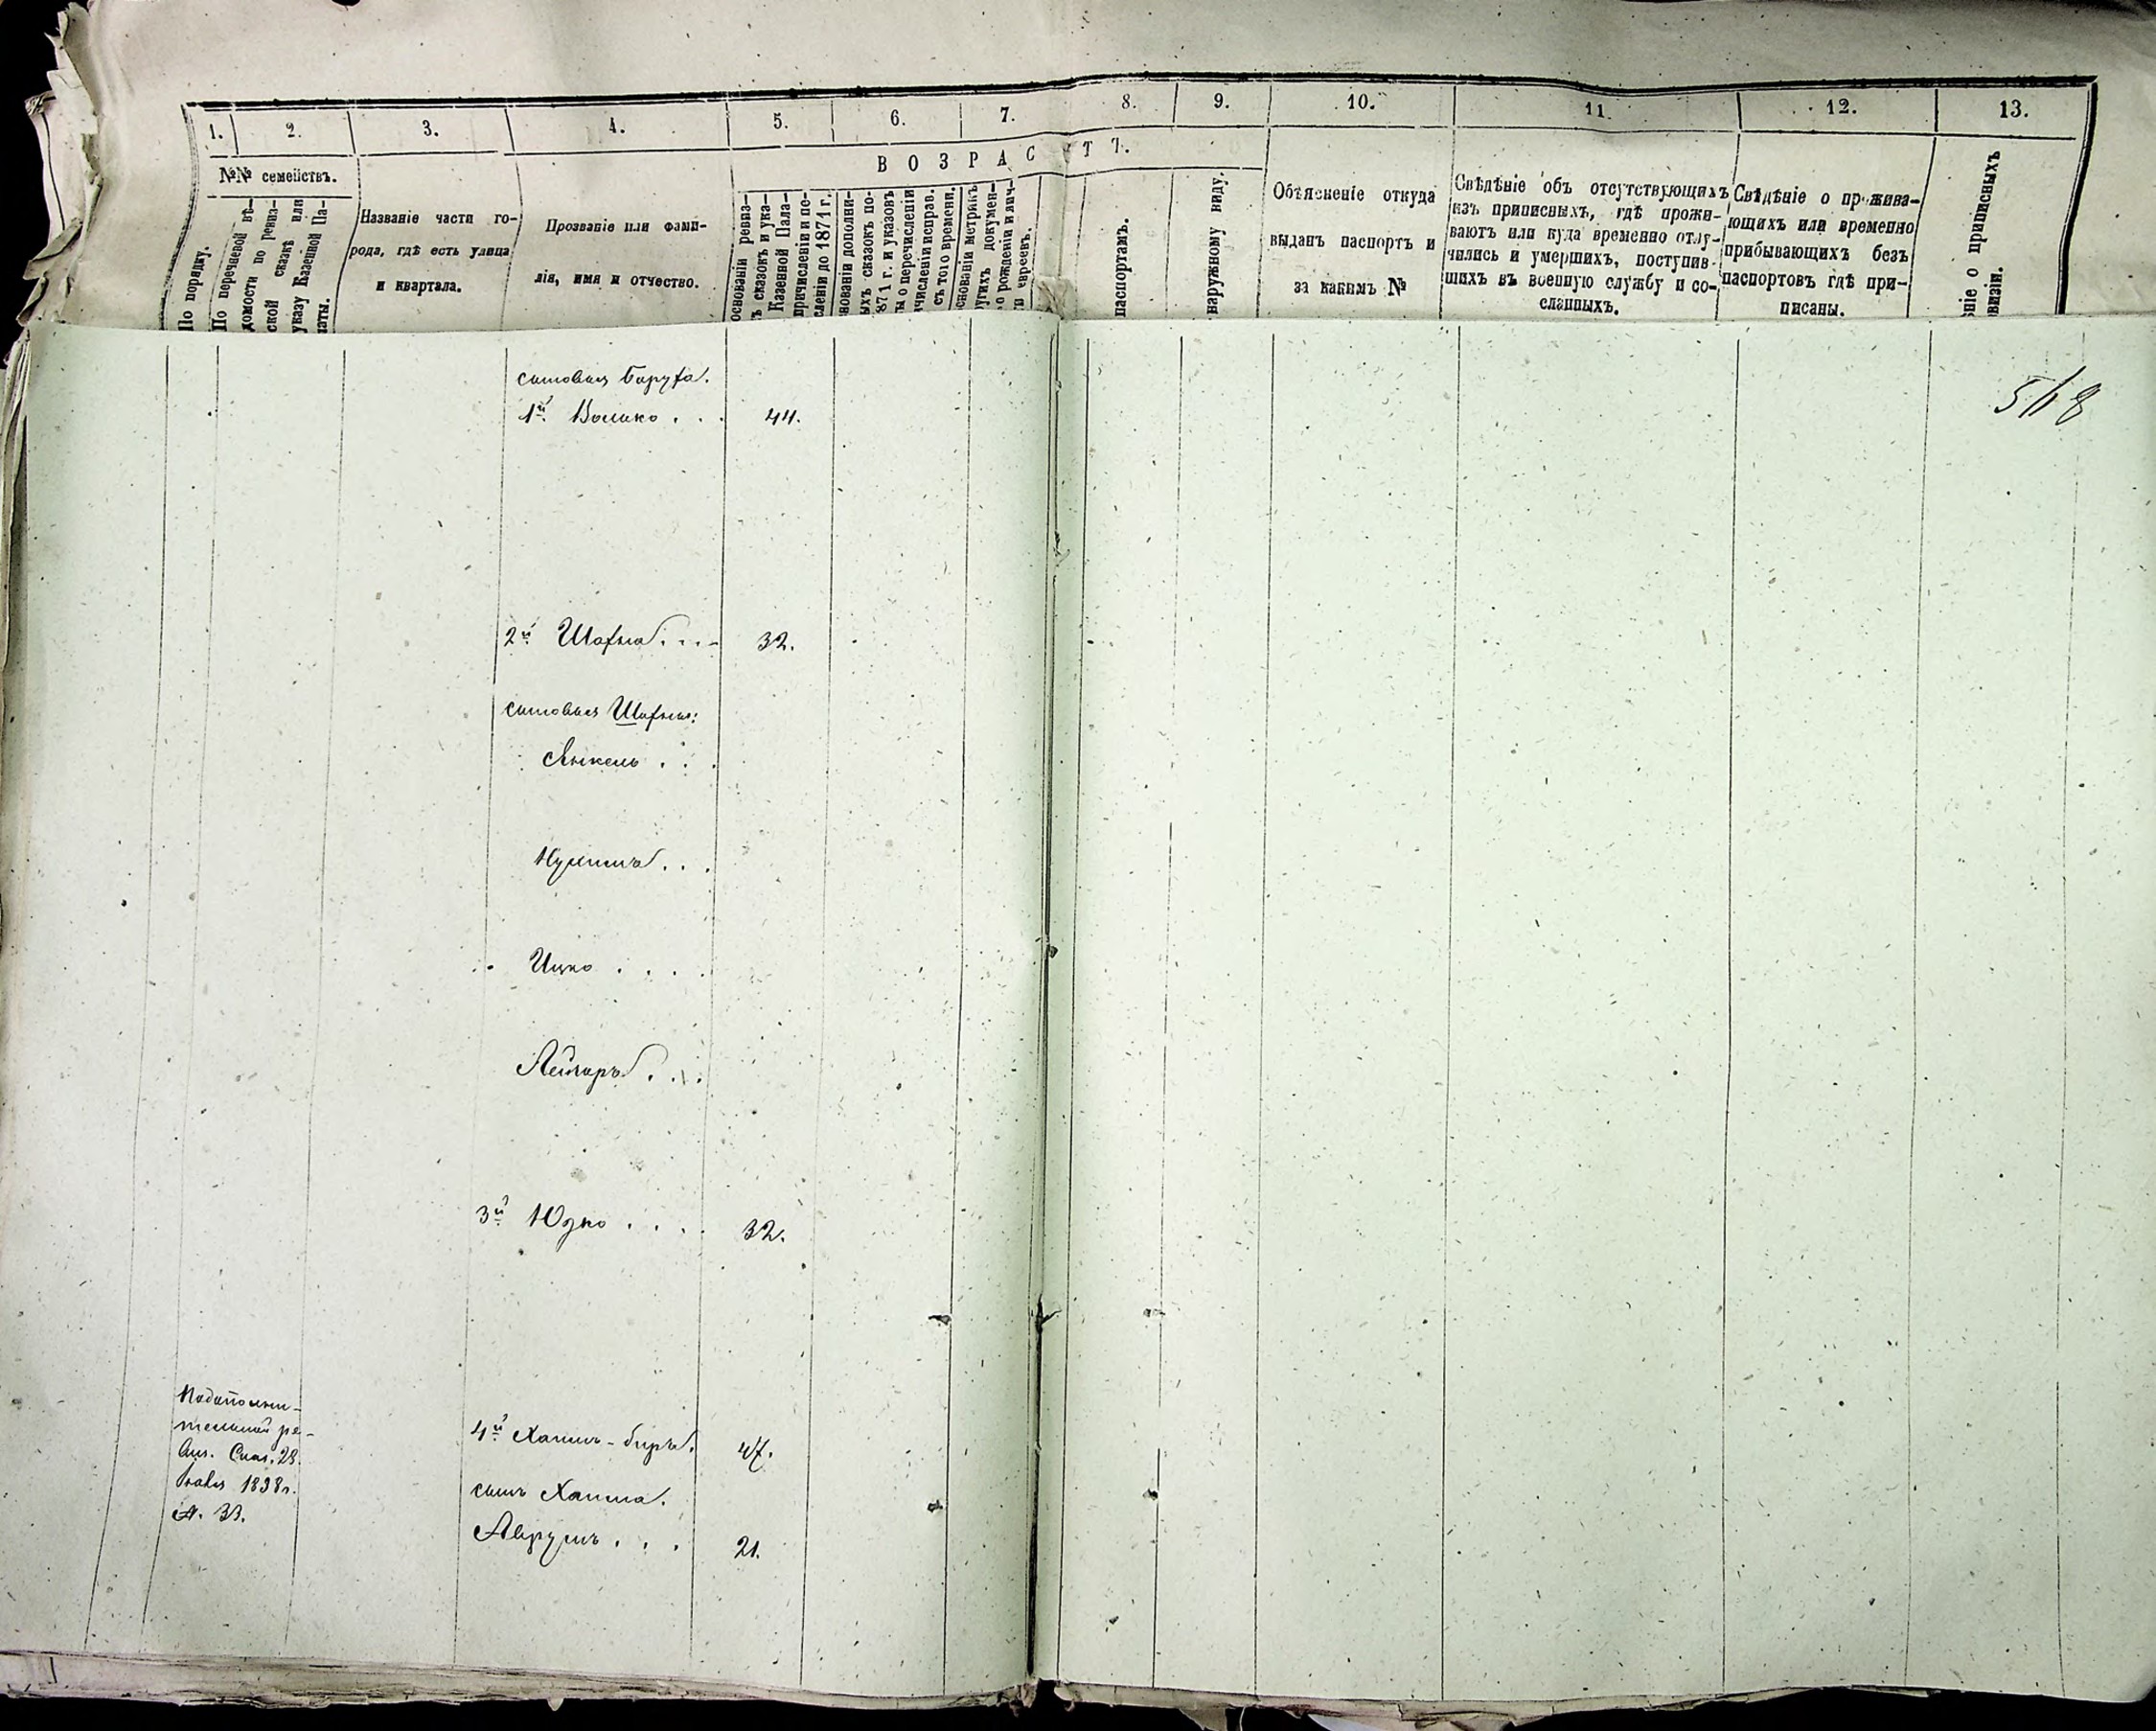 1. 2. 3. 4. 5. 6. 7. 8. 9. 10. 11. 12. 13.
№№ семействъ.
По порядку.
По перечневой вѣ-
домости по ревиз-
ской сказкѣ или
указу Казенной Па-
латы.
Названіе части го-
рода, гдѣ есть улица
и квартала.
Прозваніе или фами-
лія, имя и отчество.
ВОЗРАСТЪ.
основаніи ревиз-
ъ сказокъ и ука-
Казенной Пала-
причисленіи и пе-
сленіи до 1871 г.
нованіи дополни-
ыхъ сказокъ по-
871 г. и указовъ
ы о перечисленіи
ичисленіи исправ.
съ того времени.
снованіи метрикъ
ругихъ докумен-
о рожденіи и лич-
ти евреевъ.
паспортамъ.
наружному виду.
Объясненіе откуда
выданъ паспортъ и
за какимъ №
Свѣдѣніе объ отсутствующихъ
изъ приписныхъ, гдѣ прожи-
ваютъ или куда временно отлу-
чились и умершихъ, поступив-
шихъ въ военную службу и со-
сланныхъ.
Свѣдѣніе о прожива-
ющихъ или временно
прибывающихъ безъ
паспортовъ гдѣ при-
писаны.
ніе о приписныхъ
визіи.
сыновья Баруха.
1й Волько . . . 44.
518
2й Шахна . . . 32.
сыновья Шахны:
Янкель . . .
Нухимъ . . .
Ицко . . . .
Лейзаръ . . .
3й Юдко . . . . 32.
Подополни-
тельной ре-
виз. Сказ. 28
1838г.
№. 33.
4й Хаимъ-биръ. 47.
сынъ Хаима.
Аврумъ . . . 21.